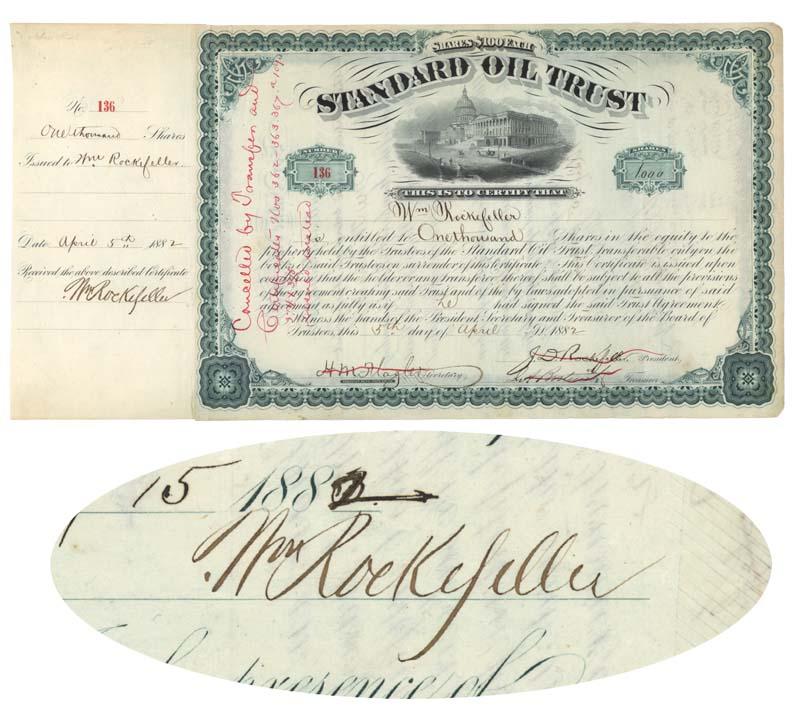 No 136
One thousand Shares
Issued to Wm Rockefeller
Date April 5th 1882
Received the above described Certificate
Wm Rockefeller
SHARES $100 EACH
STANDARD OIL TRUST
NUMBER
136
SHARES
1000
THIS IS TO CERTIFY THAT
Wm Rockefeller
is entitled to One thousand Shares in the equity to the
property held by the Trustees of the Standard Oil Trust, transferable only on the
books of said Trustees on surrender of this Certificate. This Certificate is issued upon
condition that the holder or any transferee thereof shall be subject to all the provisions
of the Agreement creating said Trust and of the by laws adopted in pursuance of said
Agreement as fully as if he had signed the said Trust Agreement.
Witness the hands of the President, Secretary and Treasurer of the Board of
Trustees, this 5th day of April 1882
H M Flagler Secretary,
J. D. Rockefeller President,
Treasurer
Cancelled by Transfer and
Certificates Nos 362-363.367
issued instead
15 188
Wm Rockefeller
presence of